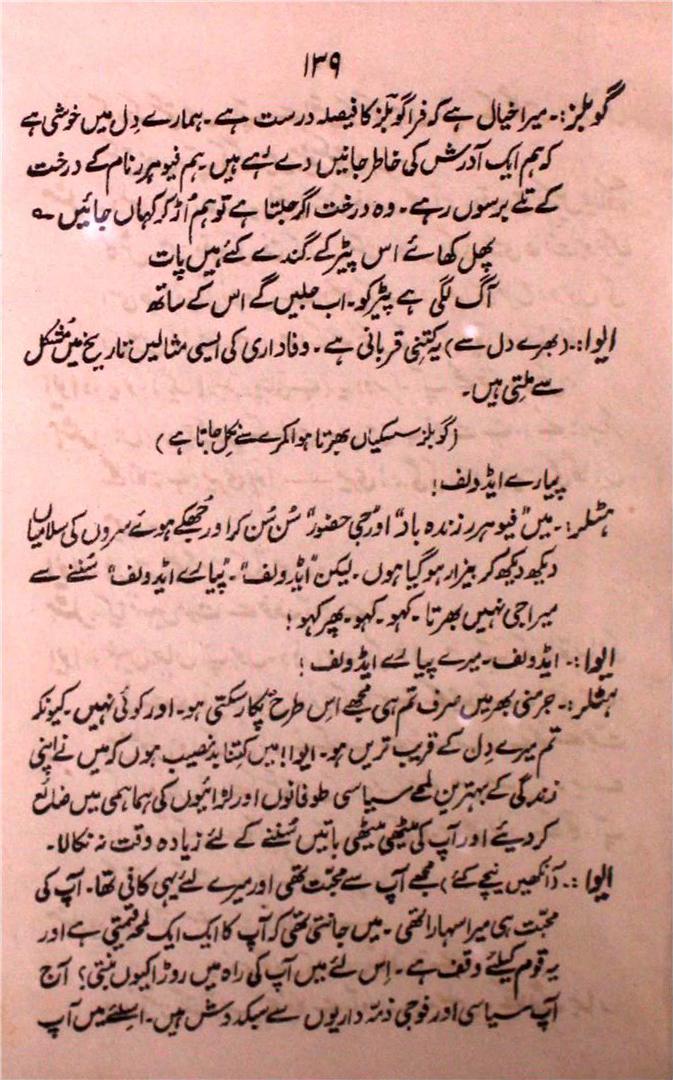 ۱۳۹
گوبلز:۔ میرا خیال ہے کہ فرا گوبلز کا فیصلہ درست ہے۔ ہمارے دل میں خوشی ہے
کہ ہم ایک آدرش کی خاطر جانیں دے رہے ہیں۔ ہم فیوہرر نام کے درخت
کے تلے برسوں رہے۔ وہ درخت اگر جلتا ہے تو ہم اُڑ کر کہاں جائیں ؎
پھل کھائے اس پیڑ کے۔ گندے کئے ہیں پات
آگ لگی ہے پیڑ کو۔ اب جلیں گے اس کے ساتھ
ایوا:۔ (بھرے دل سے) یہ کتنی قربانی ہے۔ وفاداری کی ایسی مثالیں تاریخ میں مُشکل
سے ملتی ہیں۔
(گوبلز سسکیاں بھرتا ہوا کمرے سے نکل جاتا ہے)
پیارے ایڈولف!
ہٹلر:۔ میں "فیوہرر زندہ باد" اور "جی حضور" سُن سُن کر اور جُھکے ہوئے سروں کی سلامیاں
دیکھ دیکھ کر بیزار ہو گیا ہوں۔ لیکن "ایڈولف"۔ "پیارے ایڈولف" سُننے سے
میرا جی نہیں بھرتا۔ کہو۔ کہو۔ پھر کہو!
ایوا:۔ ایڈولف۔ میرے پیارے ایڈولف!
ہٹلر:۔ جرمنی بھر میں صرف تم ہی مجھے اس طرح پکار سکتی ہو۔ اور کوئی نہیں۔ کیونکہ
تم میرے دل کے قریب تریں ہو۔ ایوا! میں کتنا بدنصیب ہوں کہ میں نے اپنی
زندگی کے بہترین لمحے سیاسی طوفانوں اور لڑائیوں کی ہماہمی میں ضائع
کر دیئے اور آپ کی میٹھی میٹھی باتیں سُننے کے لئے زیادہ وقت نہ نکالا۔
ایوا:۔ (آنکھیں نیچے کئے) مجھے آپ سے محبّت تھی اور میرے لئے یہی کافی تھا۔ آپ کی
محبّت ہی میرا سہارا تھی۔ میں جانتی تھی کہ آپ کا ایک ایک لمحہ قیمتی ہے اور
یہ قوم کیلئے وقف ہے۔ اِس لئے میں آپ کی راہ میں روڑا کیوں بنتی؟ آج
آپ سیاسی اور فوجی ذمّہ داریوں سے سبکدوش ہیں۔ اسلئے میں آپ